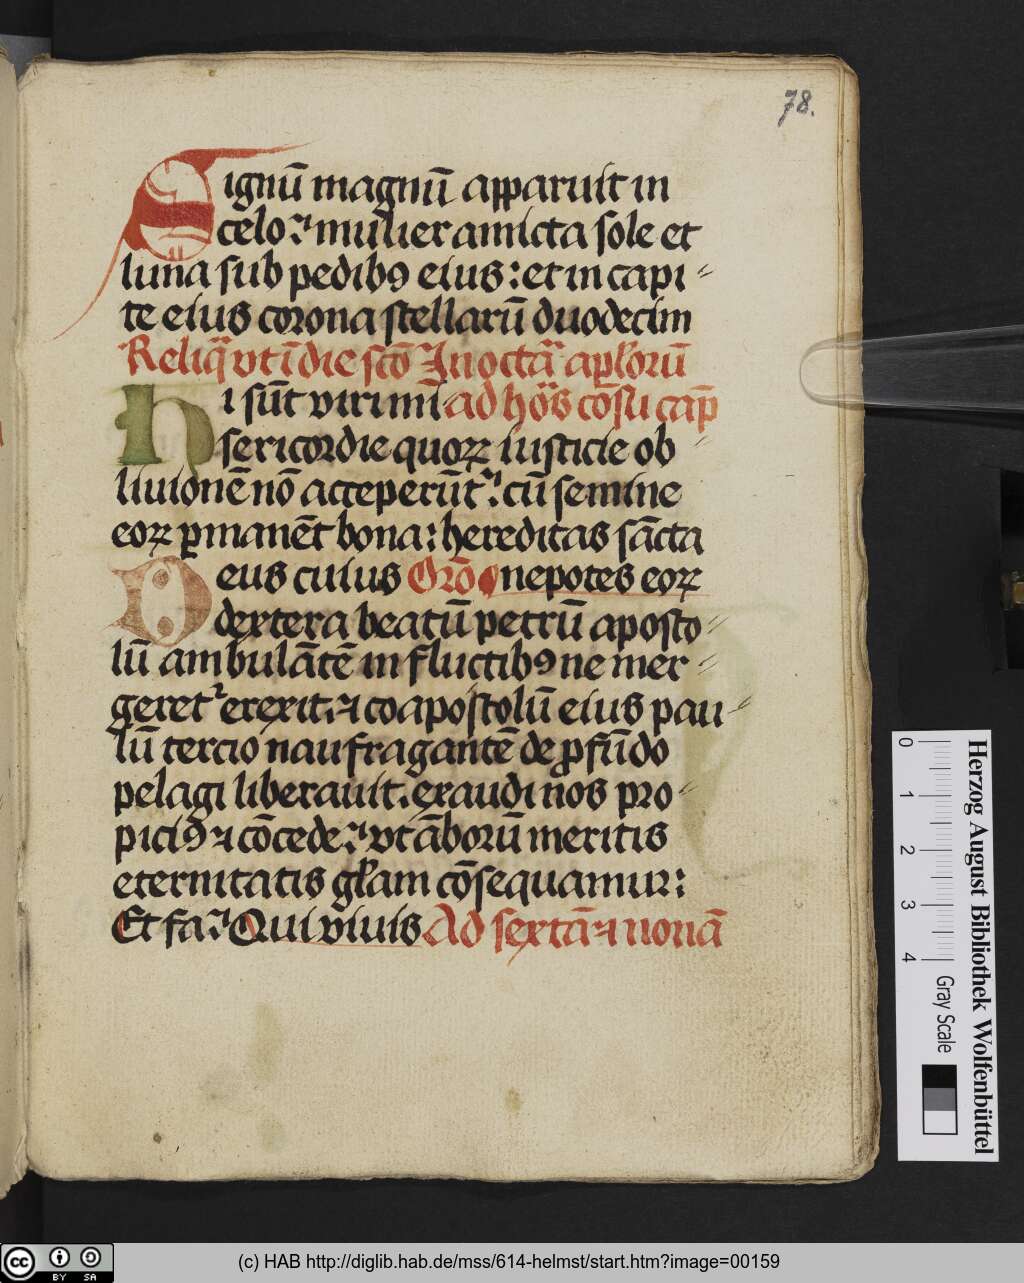 78.
Signū magnū apparuit in
celo: mulier amicta sole et
luna sub pedibꝯ eius: et in capi-
te eius corona stellarū duodecim
Reliqͣ vt ī die scō In octͣ aplorū
Hi sūt viri mī ad hoͤs cōsu cap̄
sericordie quorꝝ iusticie ob-
liuionē nō acceperūt: cū semine
eorꝝ ꝑmanēt bona: hereditas sācta
Deus cuius Orō nepotes eorꝝ
dextera beatū petrū aposto-
lū ambulātē in fluctibꝯ ne mer-
geretᷣ erexit. ⁊ coapostolū eius pau-
lū tercio naufragantē de ꝓfūdo
pelagi liberauit. exaudi nos pro-
piciꝯ ⁊ cōcede: vt āborū meritis
eternitatis glam cōsequamur:
Et fa. Qui viuis Ad sextā ⁊ nonā
0 1 2 3 4
Herzog August Bibliothek Wolfenbüttel
Gray Scale
cc BY SA
(c) HAB http://diglib.hab.de/mss/614-helmst/start.htm?image=00159